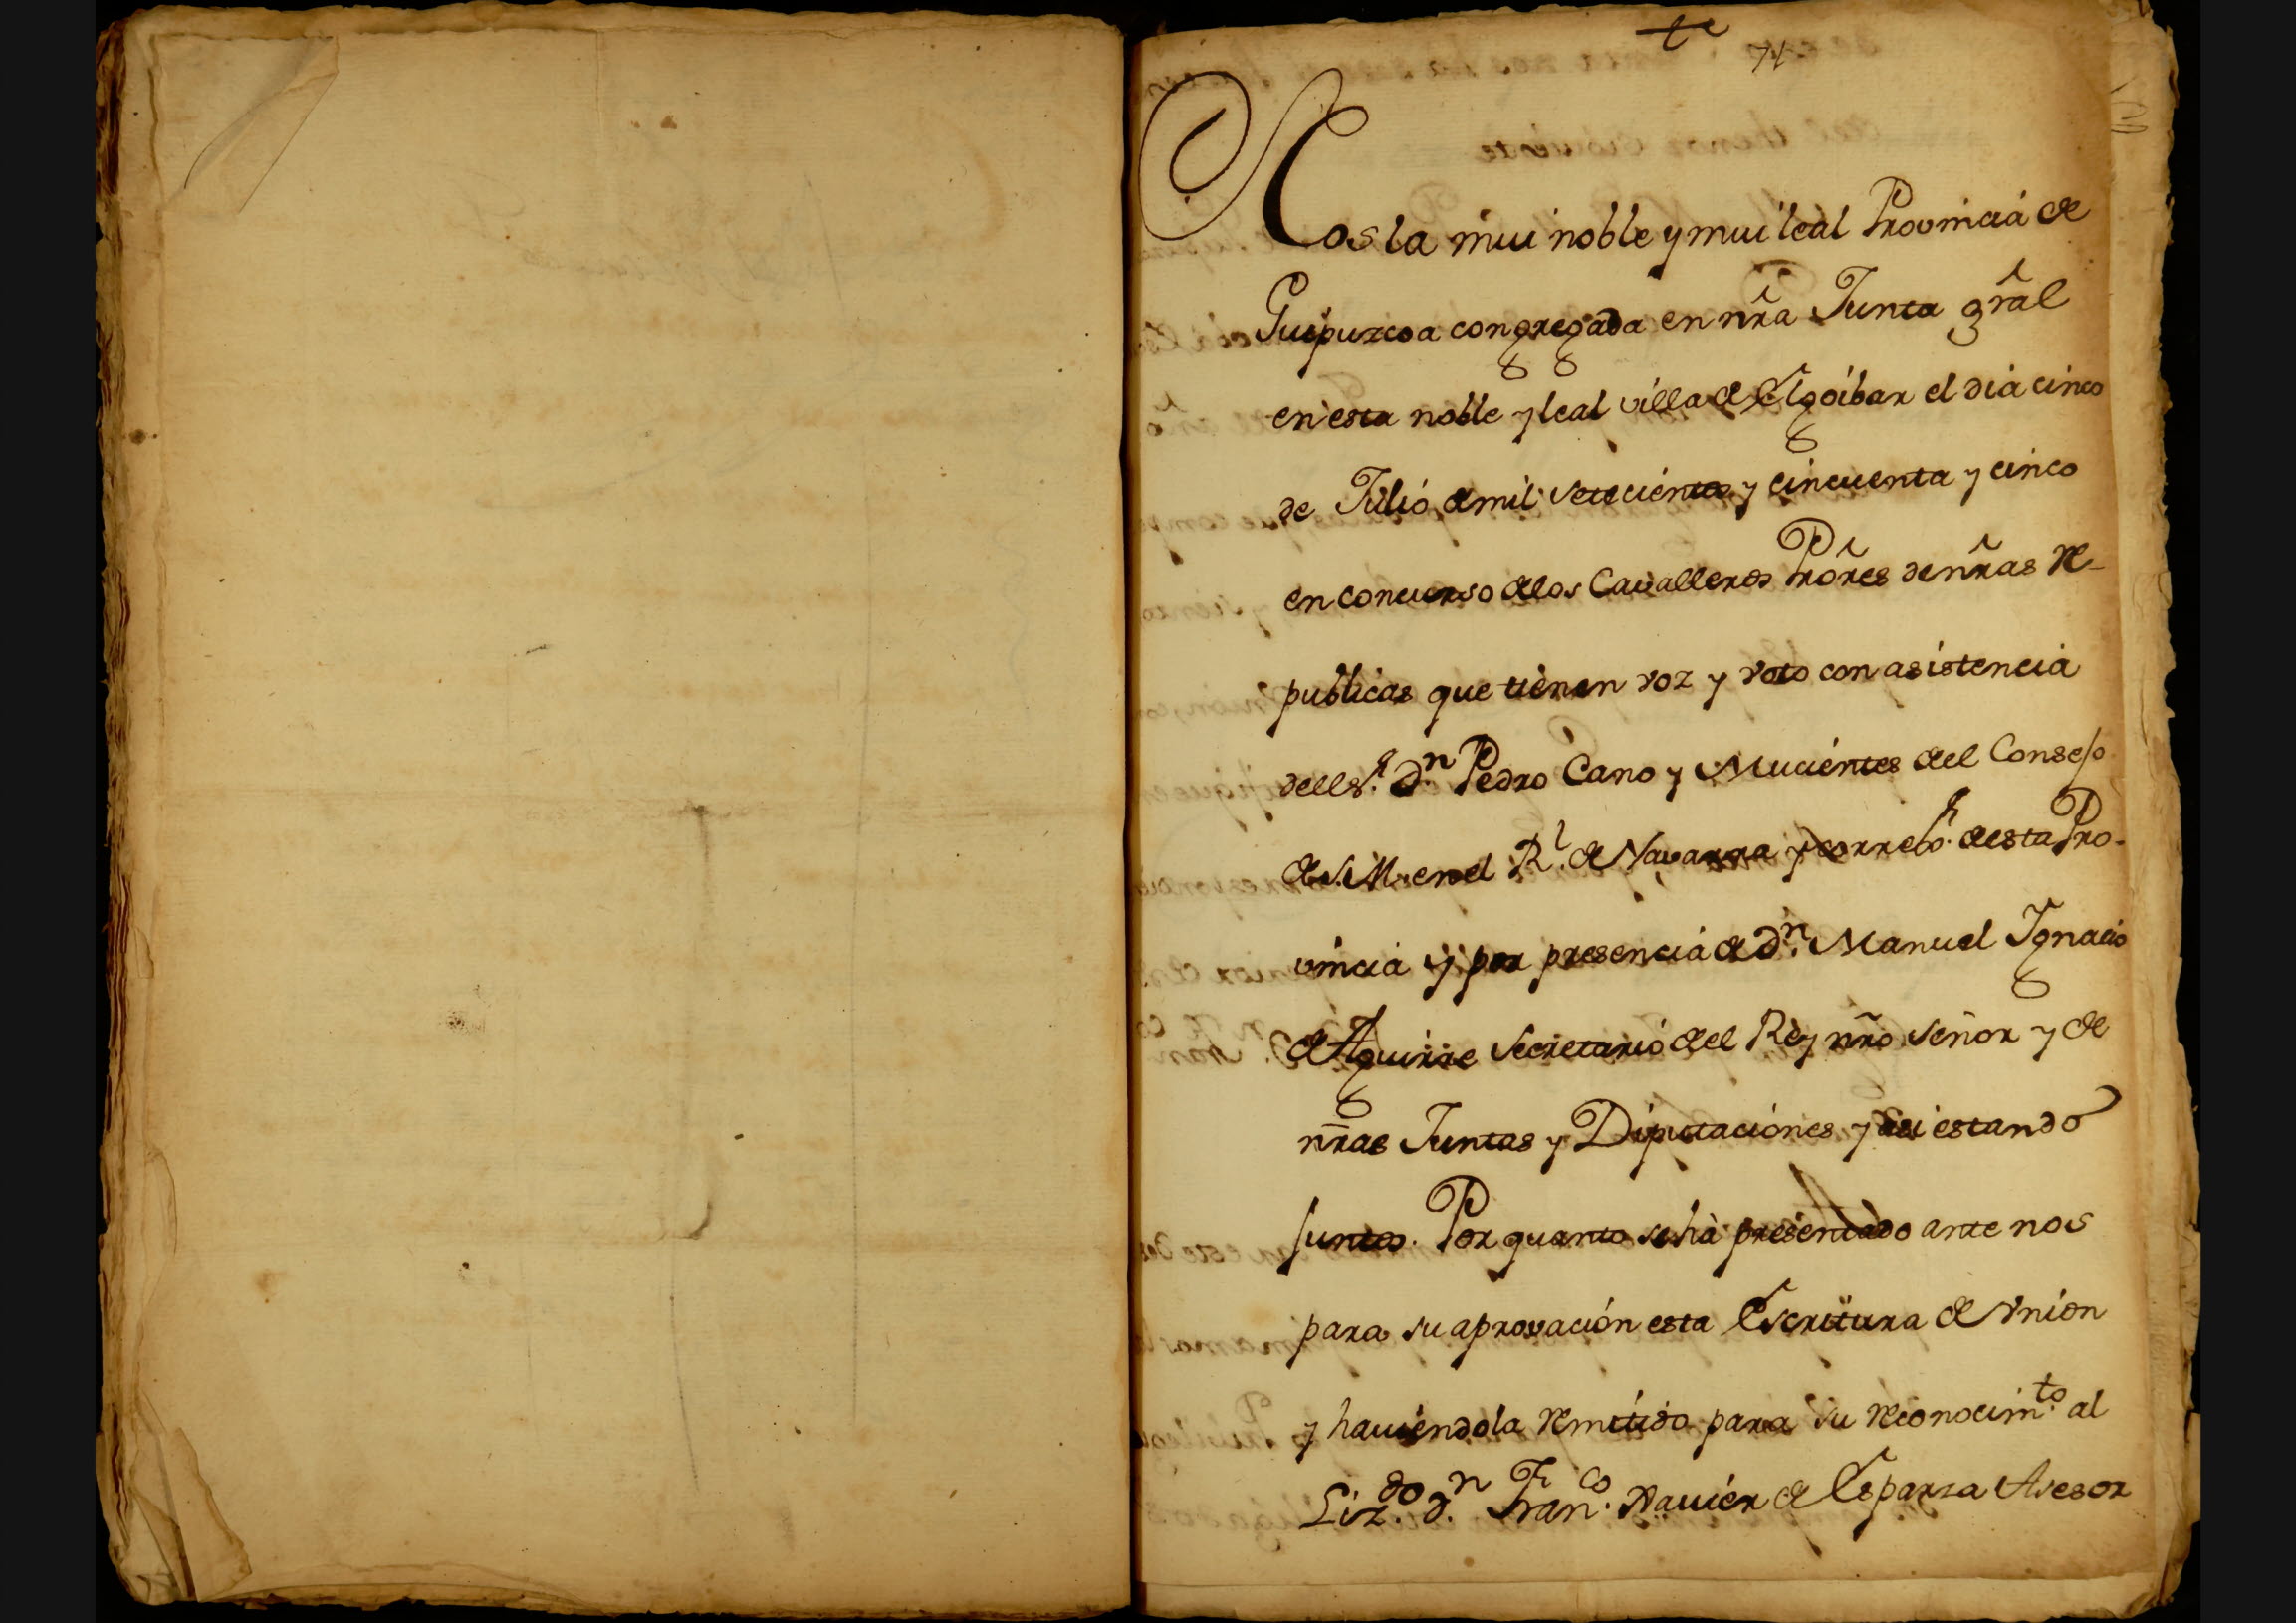 74
Nos la mui noble y mui leal Provincia de
Guipuzcoa congregada en nrã Junta grãl
en esta noble y leal villa de Elgoibar el dia cinco
de Julio de mil setecientos y cincuenta y cinco
en concurso de los Cavalleros Prõres de nrãs Re-
publicas que tienen voz y voto con asistencia
del Sr. Dn. Pedro Cano y Mucientes del Consejo
de S. M. en el Rl. de Navarra y correor. de esta Pro-
vincia y por presencia de Dn. Manuel Ignacio
de Aguirre Secretario del Rey nrõ señor y de
nrãs Juntas y Diputaciones y asi estando
juntos. Por quanto se hà presentado ante nos
para su aprovacion esta Escritura de Vnion
y haviendola remitido para su reconocimto. al
Lizdo. Dn. Franco. Xavier de Esparza Asesor